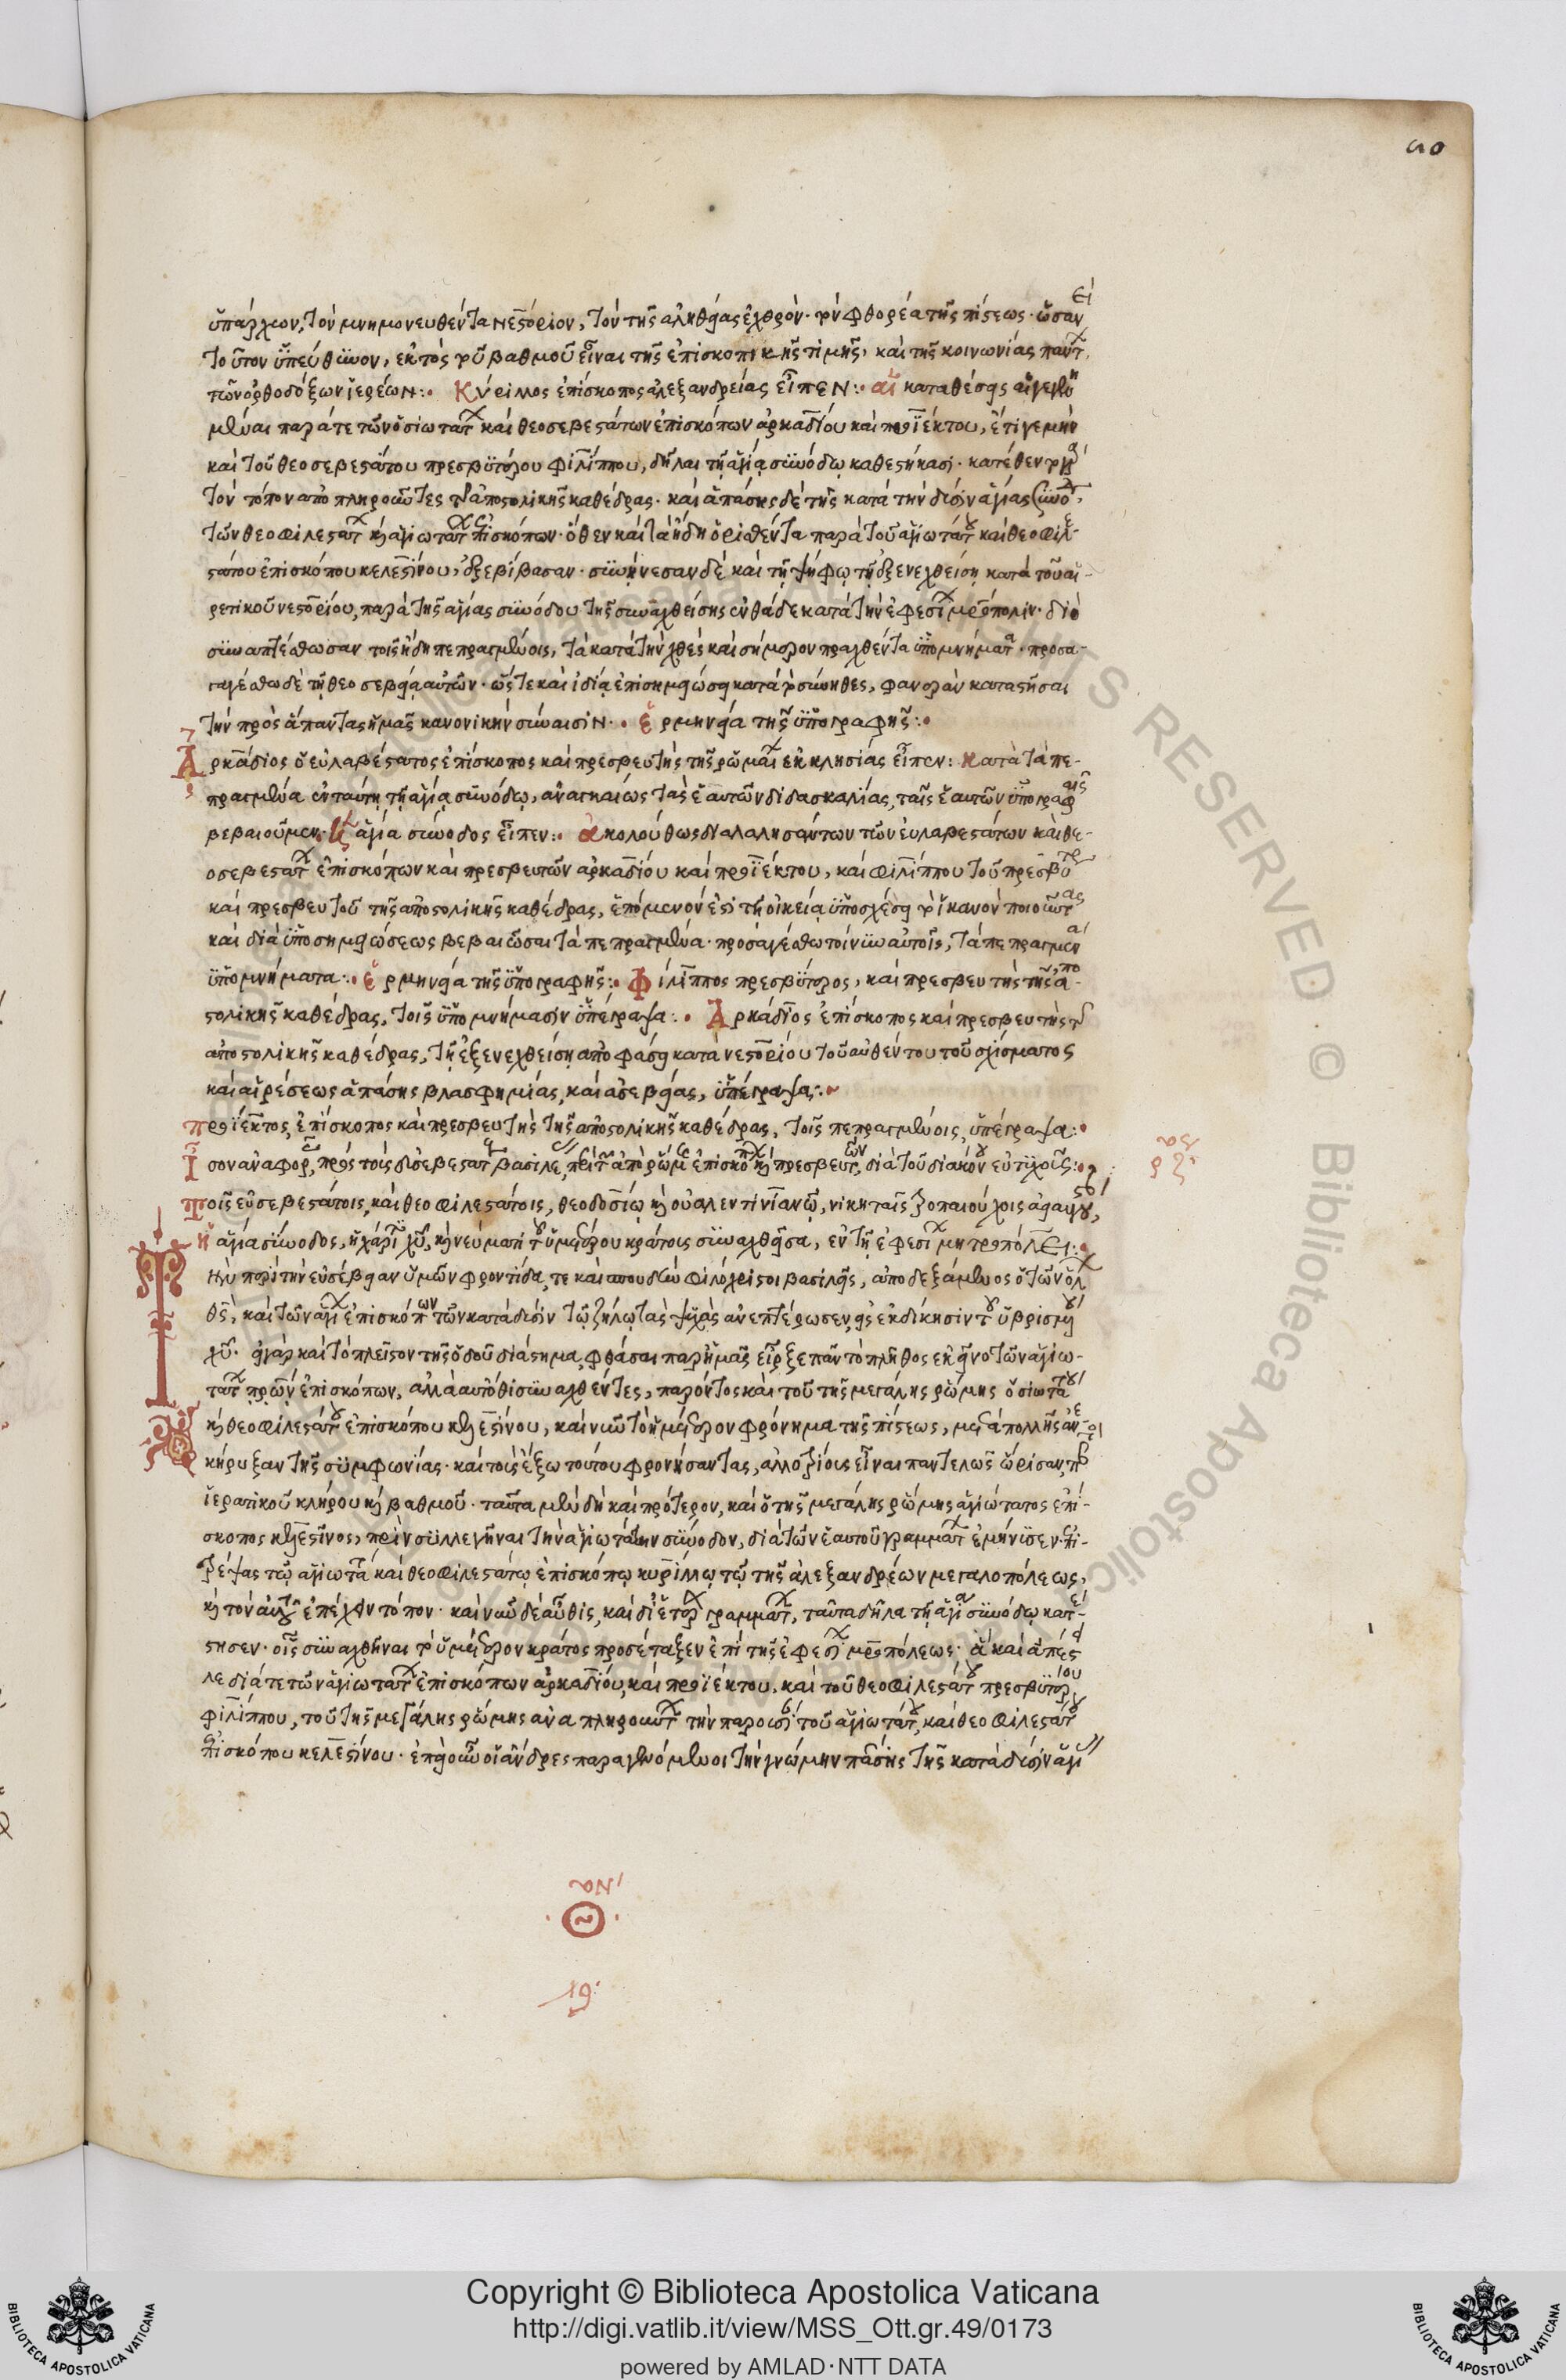 ὑπάρχων, τὸν μνημονευθέντα νεστόριον, τὸν τῆς ἀληθείας ἐχθρὸν· τὸν φθορέα τῆς πίστεως· ὡσανεὶ
τοῦτον ὑπεύθυνον, ἐκτὸς τοῦ βαθμοῦ εἶναι τῆς ἐπισκοπικῆς τιμῆς, καὶ τῆς κοινωνίας παντ
τῶν ὀρθοδόξων ἱερέων:· Κύριλλος ἐπίσκοπος ἀλεξανδρείας εἶπεν:· αἱ καταθέσεις αἱ γεγενη
μέναι παρά τε τῶν ὁσιωτατ καὶ θεοσεβεστάτων ἐπισκόπων ἀρκαδίου καὶ προϊέκτου, ἔτι γε μὴν
καὶ τοῦ θεοσεβεστάτου πρεσβυτέρου φιλίππου, δῆλαι τῇ ἁγίᾳ συνόδῳ καθεστήκασι· κατέθεντο γὰρ
τὸν τόπον ἀποπληροῦντες τῆς ἀποστολικῆς καθέδρας· καὶ ἁπάσης δὲ τῆς κατὰ τὴν δύσιν ἁγίας συνόδ
τῶν θεοφιλεστατ κ ἁγιωτατ ἐπισκόπων· ὅθεν καὶ τὰ ἤδη ὁρισθέντα παρὰ τοῦ ἁγιωτάτου καὶ θεοφιλε
στάτου ἐπισκόπου κελεστίνου, ἐξεβίβασαν· συνῄνεσαν δὲ καὶ τῇ ψήφῳ τῇ ἐξενεχθείσῃ κατὰ τοῦ αἱ-
ρετικοῦ νεστορίου, παρὰ τῆς ἁγίας συνόδου τῆς συναχθείσης ἐνθάδε κατὰ τὴν ἐφεσί μρόπολιν· διὸ
συναπτέσθωσαν τοῖς ἤδη πεπραγμένοις, τὰ κατὰ τὴν χθὲς καὶ σήμερον πραχθέντα ὑπομνήματα· προσα-
γαγέσθω δὲ τῇ θεοσεβείᾳ αὐτῶν· ὥστε καὶ ἰδίᾳ ἐπισημειώσει κατὰ τὸ σύνηθες, φανερὰν καταστῆσαι
τὴν πρὸς ἅπαντας ἡμᾶς κανονικὴν συναίνεσιν·· ἑρμηνεία τῆς ὑπογραφῆς:·
Ἀρκάδιος ὁ εὐλαβέστατος ἐπίσκοπος καὶ πρεσβευτὴς τῆς ῥωμαϊ ἐκκλησίας εἶπεν: Κατὰ τὰ πε-
πραγμένα ἐν ταύτῃ τῇ ἁγίᾳ συνόδῳ, ἀναγκαίως τὰς ἑαυτῶν διδασκαλίας, ταῖς ἑαυτῶν ὑπογραφαῖς
βεβαιοῦμεν· ἡ ἁγία σύνοδος εἶπεν:· ἀκολούθως διαλαλησάντων τῶν εὐλαβεστάτων καὶ θε-
οσεβεστατ ἐπισκόπων καὶ πρεσβευτῶν ἀρκαδίου καὶ προϊέκτου, καὶ φιλίππου τοῦ πρεσβυτρ
καὶ πρεσβευτοῦ τῆς ἀποστολικῆς καθέδρας, ἑπόμενόν ἐστι τῇ οἰκείᾳ ὑποσχέσει τὸ ἱκανὸν ποιοῦντας
καὶ δι' ὑποσημειώσεως βεβαιῶσαι τὰ πεπραγμένα· προσαγέσθω τοίνυν αὐτοῖς, τὰ πεπραγμένα
ὑπομνήματα:· ἑρμηνεία τῆς ὑπογραφῆς:· Φίλιππος πρεσβύτερος, καὶ πρεσβευτὴς τῆς ἀπο-
στολικῆς καθέδρας, τοῖς ὑπομνήμασιν ὑπέγραψα:· Ἀρκάδιος ἐπίσκοπος καὶ πρεσβευτὴς τῆς
ἀποστολικῆς καθέδρας, τῇ ἐξενεχθείσῃ ἀποφάσει κατὰ νεστορίου τοῦ αὐθέντου τοῦ σχίσματος
καὶ αἱρέσεως ἁπάσης βλασφημίας, καὶ ἀσεβείας, ὑπέγραψα:·
προϊέκτος, ἐπίσκοπος καὶ πρεσβευτὴς τῆς ἀποστολικῆς καθέδρας, τοῖς πεπραγμένοις, ὑπέγραψα:·
Ἴσον ἀναφορ, πρὸς τοὺς εὐσεβεστατ βασιλε, περὶ τῶν ἀπὸ ῥώμ ἐπισκόπ κ πρεσβευτῶν, διὰ τοῦ διακόνου εὐτυχοῦς:·
Τοῖς εὐσεβεστάτοις, καὶ θεοφιλεστάτοις, θεοδοσίῳ κ οὐαλεντινιανῷ, νικηταῖς τροπαιούχοις ἀεὶ αὐγού,
ἡ ἁγία σύνοδος, ἡ χάριτι χυ, κ νεύματι τοῦ ὑμετέρου κράτους συναχθεῖσα, ἐν τῇ ἐφεσί μητροπόλει:·
Τὴν περὶ τὴν εὐσέβειαν ὑμῶν φροντίδα τε καὶ σπουδὴν φιλόχριστοι βασιλεῖς, ἀποδεξάμενος ὁ τῶν ὅλ
θς, καὶ τῶν ἁγί ἐπισκόπων τῶν κατὰ δύσιν τῷ ζήλῳ τὰς ψυχὰς ἀνεπτέρωσεν, εἰς ἐκδίκησιν τοῦ ὑβρισμένου
χυ· εἰ γὰρ καὶ τὸ πλεῖστον τῆς ὁδοῦ διάστημα, φθάσαι παρ' ἡμᾶς εἶρξε πᾶν τὸ πλῆθος ἐκεῖνο τῶν ἁγιω-
τατ πρων ἐπισκόπων, ἀλλὰ αὐτόθι συναχθέντες, παρόντος καὶ τοῦ τῆς μεγάλης ῥώμης ὁσιωτάτου
κ θεοφιλεστάτου ἐπισκόπου κελεστίνου, καὶ νῦν τὸ ἡμέτερον φρόνημα τῆς πίστεως, μετὰ πολλῆς ἀνε-
κήρυξαν τῆς συμφωνίας· καὶ τοὺς ἔξω τούτου φρονήσαντας, ἀλλοτρίους εἶναι παντελῶς ὥρισαν, τοῦ
ἱερατικοῦ κλήρου κ βαθμοῦ· ταῦτα μὲν δὴ καὶ πρότερον, καὶ ὁ τῆς μεγάλης ῥώμης ἁγιώτατος ἐπί-
σκοπος κελεστῖνος, πρὶν συλλεγῆναι τὴν ἁγιωτάτην σύνοδον, διὰ τῶν ἑαυτοῦ γραμμάτ ἐμήνυσεν· ἐπι-
τρέψας τῷ ἁγιωτά καὶ θεοφιλεστάτῳ ἐπισκόπῳ κυρίλλῳ τῷ τῆς ἀλεξανδρέων μεγαλοπόλεως,
κ τὸν αὐτοῦ ἐπέχειν τόπον· καὶ νῦν δὲ αὖθις, καὶ δι' ἑτέρ γραμμάτ, ταῦτα δῆλα τῇ ἁγίᾳ συνόδῳ κατέ-
στησεν· οὓς συναχθῆναι τὸ ὑμέτερον κράτος προσέταξεν ἐπὶ τῆς ἐφεσί μροπόλεως· ἃ καὶ ἀπέστει
λε διά τε τῶν ἁγιωτατ ἐπισκόπων ἀρκαδίου, καὶ προϊέκτου, καὶ τοῦ θεοφιλεστάτου πρεσβυτέρου
φιλίππου, τοῦ τῆς μεγάλης ῥώμης ἀναπληρούντ τὴν παρουσί τοῦ ἁγιωτάτου, καὶ θεοφιλεστάτου
ἐπισκόπου κελεστίνου· ἐπεὶ οὖν οἱ ἄνδρες παραγενόμενοι τὴν γνώμην πάσης τῆς κατὰ δύσιν ἁγί
Copyright © Biblioteca Apostolica Vaticana
http://digi.vatlib.it/view/MSS_Ott.gr.49/0173
powered by AMLAD·NTT DATA